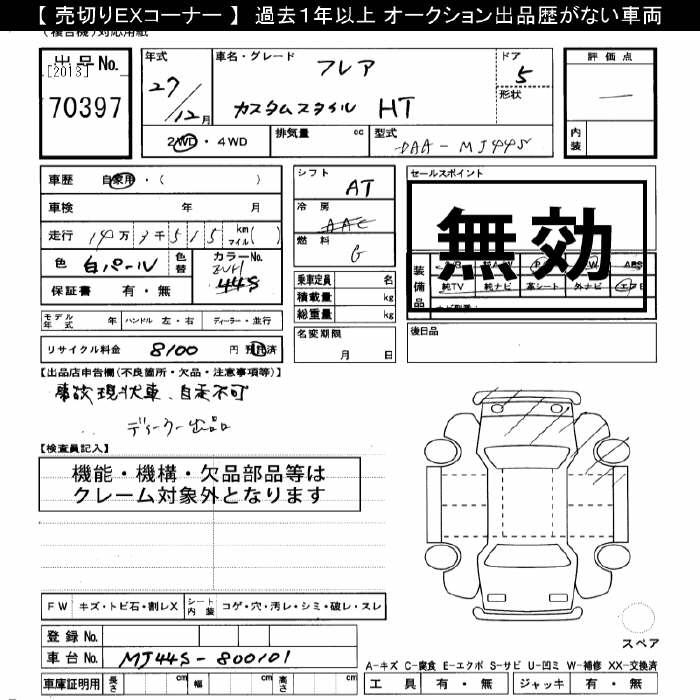 【 売切りEXコーナー 】 過去1年以上 オークション出品歴がない車両
(複合機)対応用紙
出品No.
[2013]
70397
年式
27/12月
車名・グレード
フレア
カスタムスタイル HT
ドア
5
形状
評価点
—
内装
2WD・4WD
排気量 cc
型式 DAA-MJ44S
車歴 自家用・( )
車検 年 月
走行 14万 7千 5 1 5 km マイル( )
色 白パール
色替
カラーNo.
ZVH
44S
保証書 有・無
シフト AT
冷房 AAC
燃料 G
乗車定員 名
積載量 kg
総重量 kg
セールスポイント
無効
装備品
ABS
純TV 純ナビ 革シート 外ナビ エアB
モデル年式 年
ハンドル 左・右
ディーラー・並行
名変期限
月 日
後日品
リサイクル料金 8100 円 預託済
【出品店申告欄(不良箇所・欠品・注意事項等)】
事故現状車、自走不可
ディーラー出品
【検査員記入】
機能・機構・欠品部品等は
クレーム対象外となります
FW キズ・トビ石・割レX
シート内装 コゲ・穴・汚レ・シミ・破レ・スレ
登録No.
車台No. MJ44S-800101
車庫証明用 長さ cm 幅 cm 高さ cm
スペア
A-キズ C-腐食 E-エクボ S-サビ U-凹ミ W-補修 XX-交換済
工具 有・無 ジャッキ 有・無